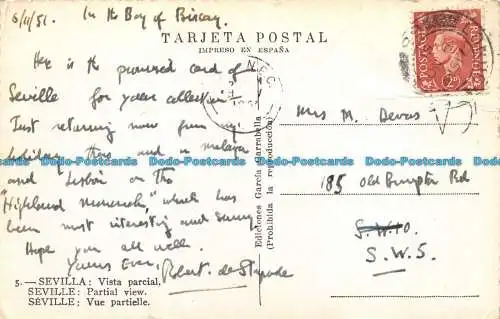 6/11/51. In the Bay of Biscay.
TARJETA POSTAL
IMPRESO EN ESPAÑA
Here is the promised card of
Seville for your collection
Just returning now from my
holiday there and in Malaga
and Lisbon on the
"Highland Monarch", which has
been most interesting and sunny
Hope you all well.
Yours Ever,
Robert de
5.—SEVILLA: Vista parcial.
SEVILLE: Partial view.
SÉVILLE: Vue partielle.
Ediciones García Garrabella
(Prohibida la reproducción)
POSTAGE
REVENUE
Mrs M. Devas
185 Old Brompton Rd
S.W.10
S.W.5.
Dodo-Postcards Dodo-Postcards Dodo-Postcards Dodo-Postcards